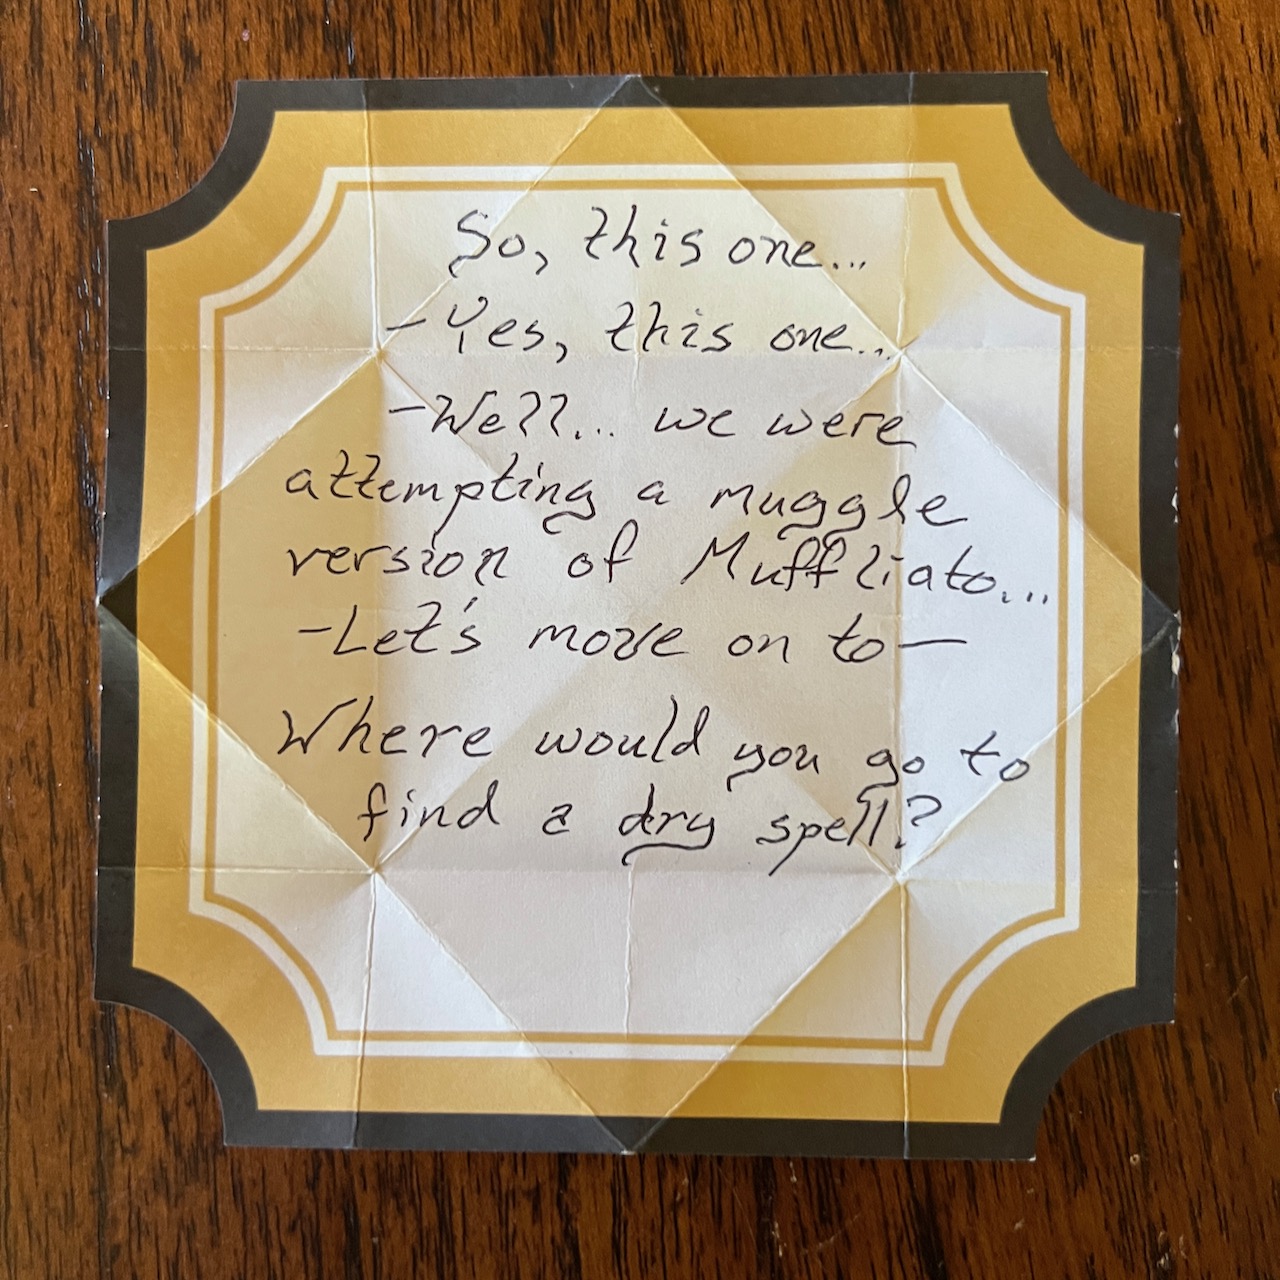 So, this one...
-Yes, this one...
-Well... we were
attempting a muggle
version of Muffliato...
-Let's move on to—
Where would you go to
find a dry spell?